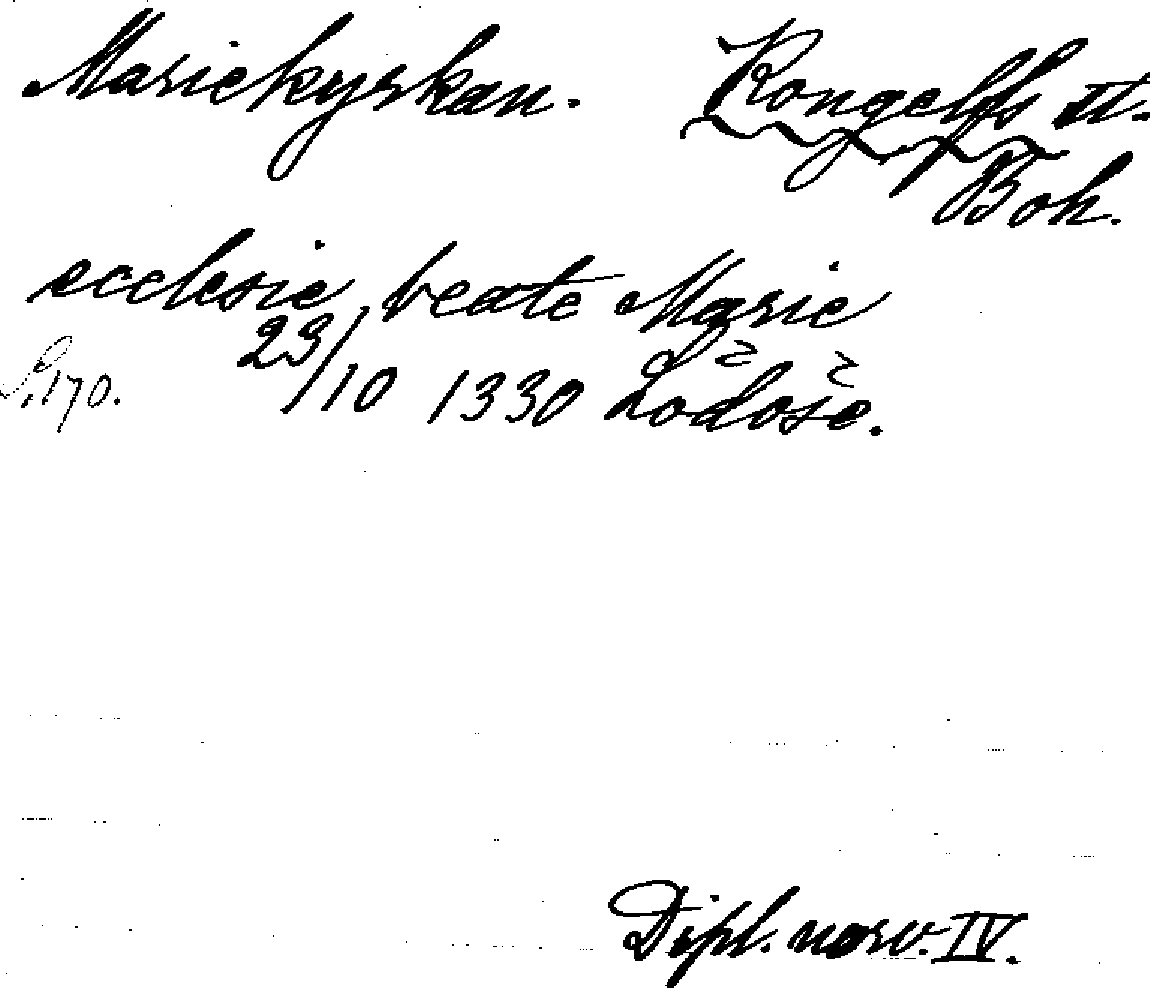 Mariekyrkan. Kongelfs st.
Boh.
ecclesie beate Marie
S. 170. 23/10 1330 Lödöse.
Dipl. norv. IV.